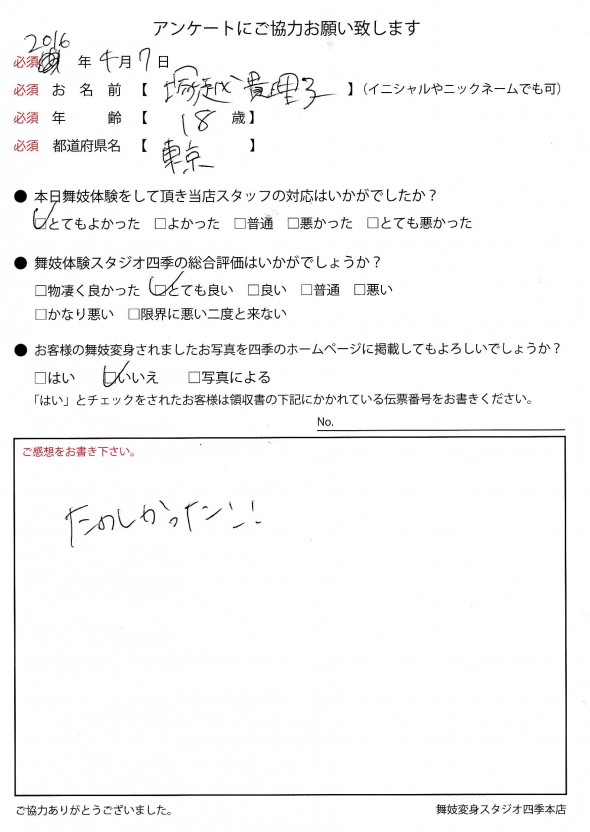 アンケートにご協力お願い致します
2016
必須 年 4月7日
必須 お名前【 塚越 貴理子 】（イニシャルやニックネームでも可）
必須 年 齢【 18 歳】
必須 都道府県名【 東京 】
● 本日舞妓体験をして頂き当店スタッフの対応はいかがでしたか？
□とてもよかった □よかった □普通 □悪かった □とても悪かった
● 舞妓体験スタジオ四季の総合評価はいかがでしょうか？
□物凄く良かった □とても良い □良い □普通 □悪い
□かなり悪い □限界に悪い二度と来ない
● お客様の舞妓変身されましたお写真を四季のホームページに掲載してもよろしいでしょうか？
□はい □いいえ □写真による
「はい」とチェックをされたお客様は領収書の下記にかかれている伝票番号をお書きください。
No.
ご感想をお書き下さい。
たのしかったン！！
ご協力ありがとうございました。
舞妓変身スタジオ四季本店